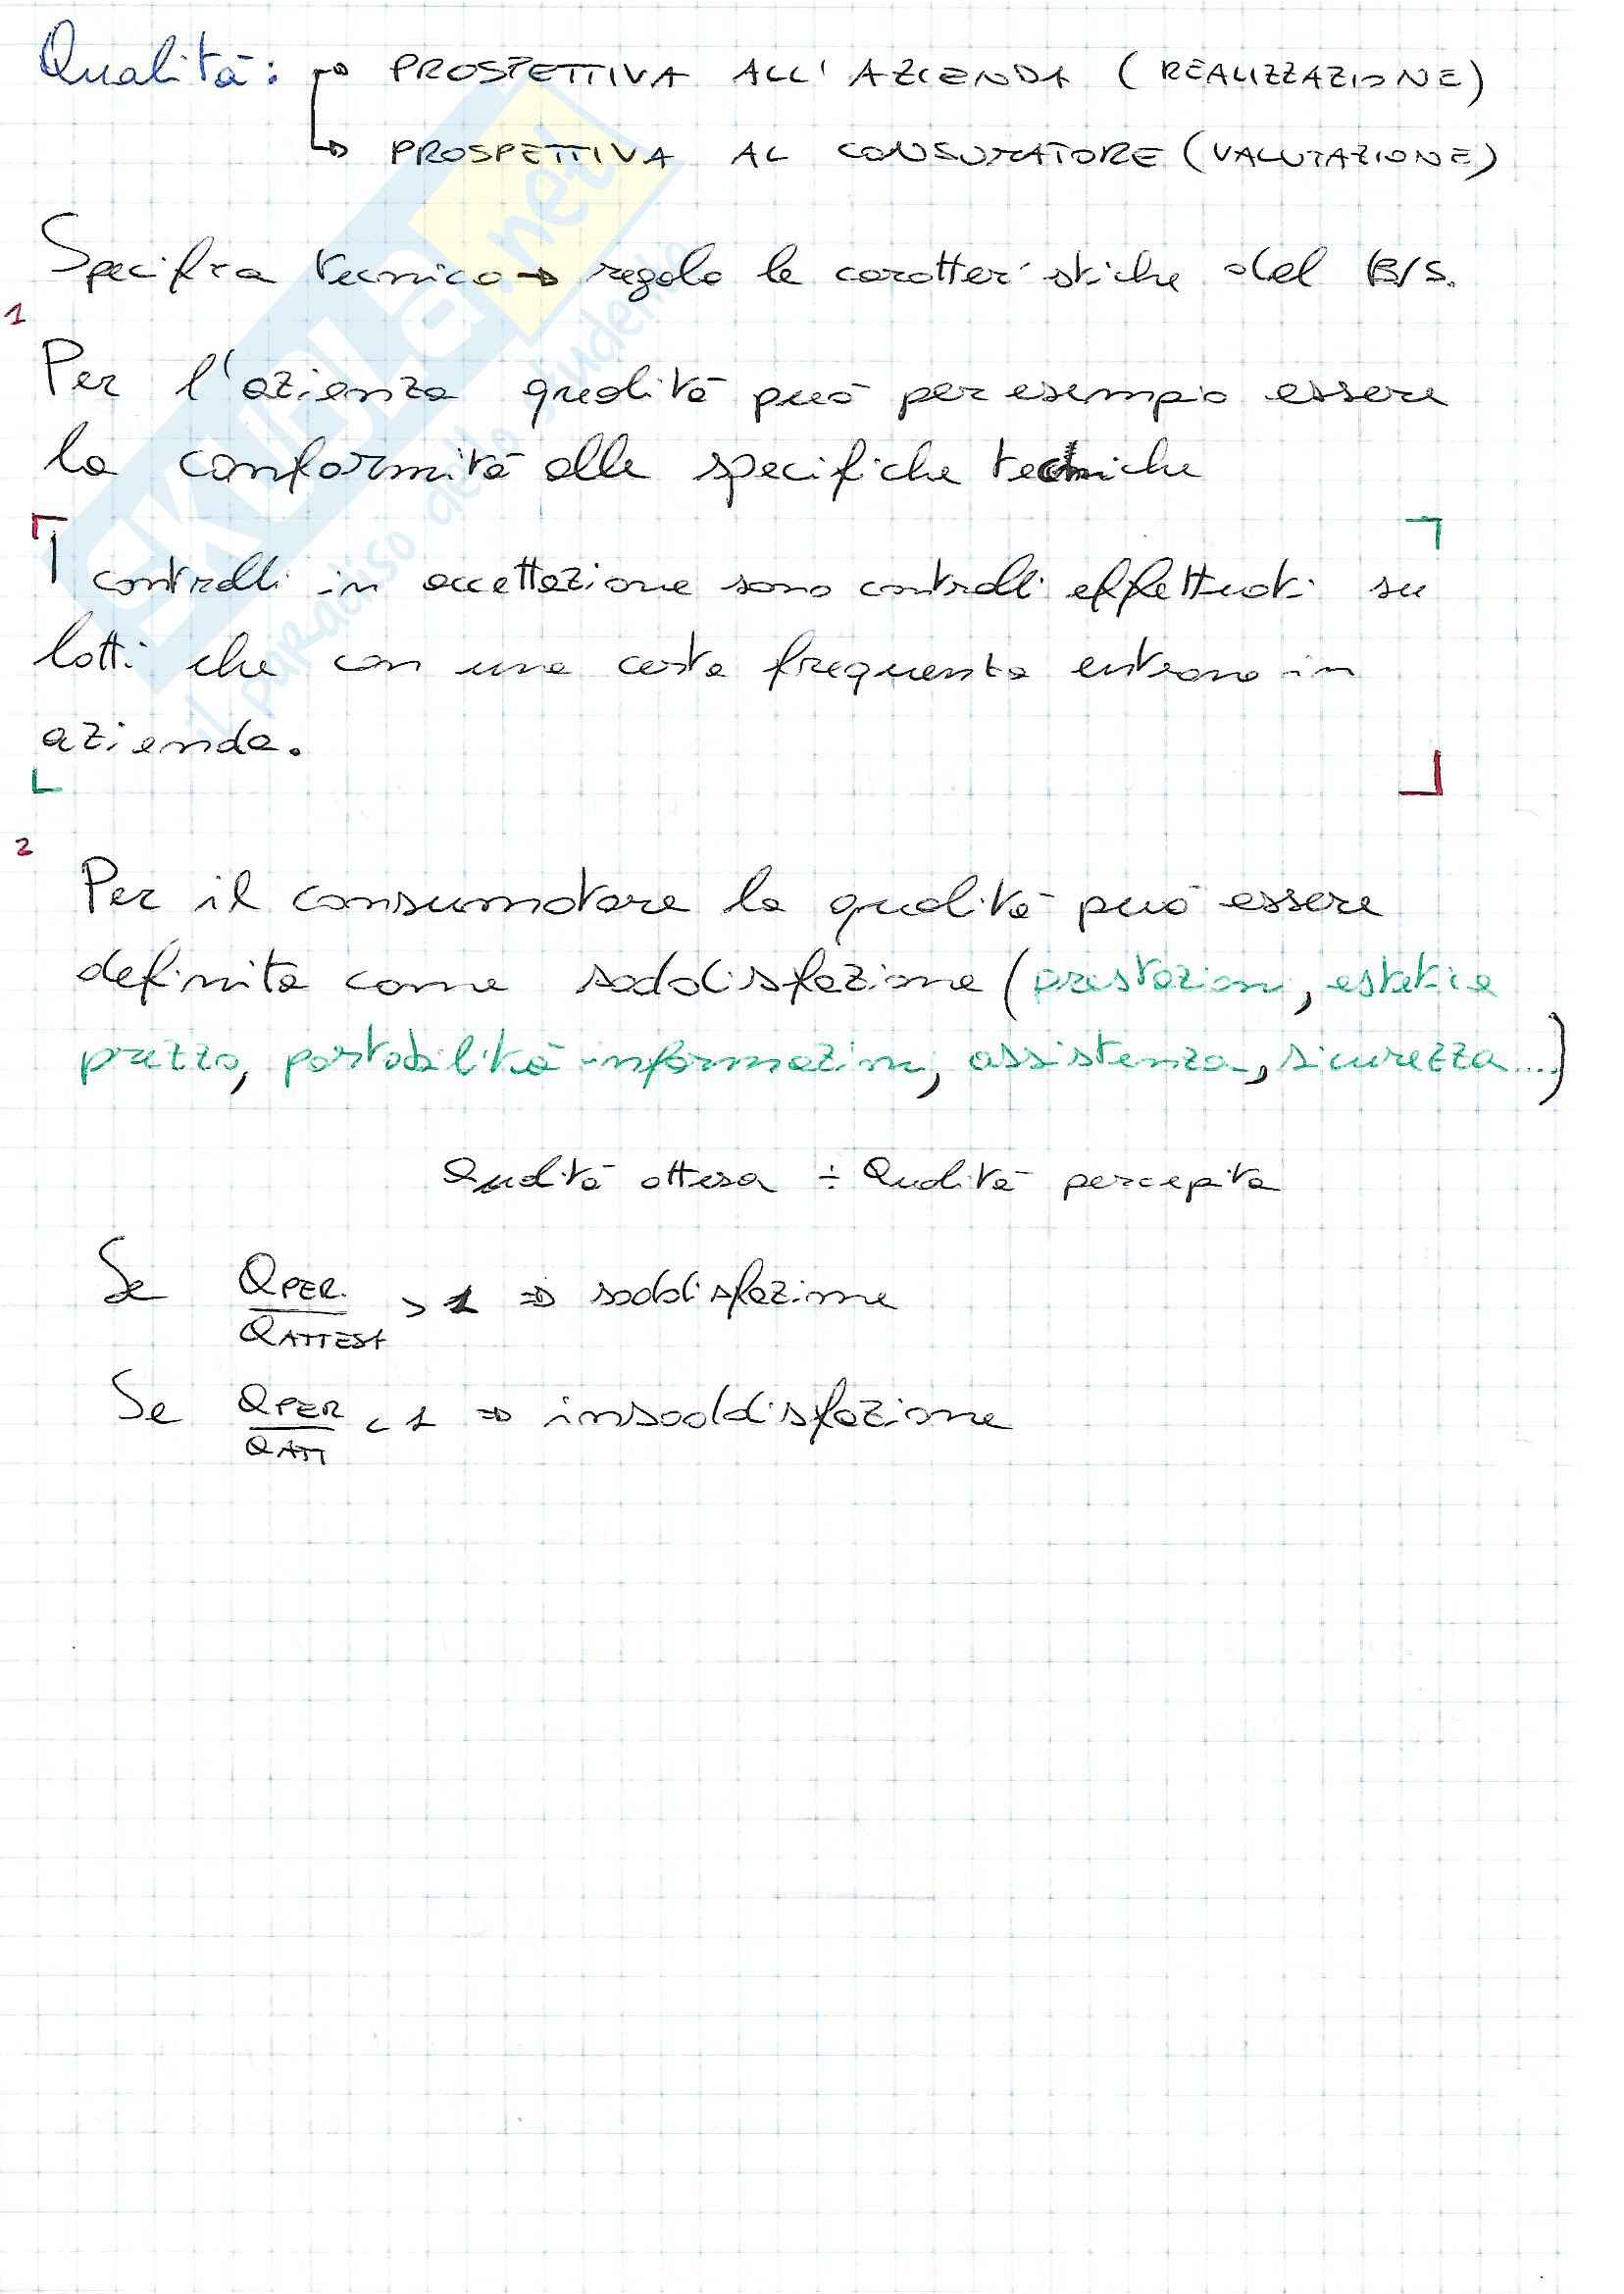 Qualità: → PROSPETTIVA ALL' AZIENDA (REALIZZAZIONE)
→ PROSPETTIVA AL CONSUMATORE (VALUTAZIONE)
Specifica tecnica → regola le caratteristiche del B/S.
1
Per l'azienza qualità può per esempio essere
la conformità alle specifiche tecniche
I controlli in accettazione sono controlli effettuati su
lotti che con una certa frequenza entrano in
azienda.
2
Per il consumatore la qualità può essere
definita come soddisfazione (prestazioni, estetica
prezzo, portabilità informazioni, assistenza, sicurezza....)
Qualità attesa ÷ Qualità percepita
Se QPER. / QATTESA > 1 ⇒ soddisfazione
Se QPER / QATT < 1 ⇒ insoddisfazione
SKUOLA.net
il paradiso dello studente